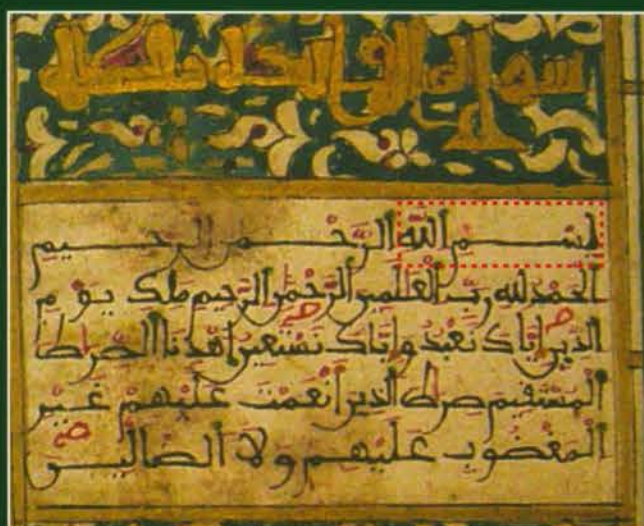 بِسْمِ اللَّهِ الرَّحْمٰنِ الرَّحِيمِ
الْحَمْدُ لِلهِ رَبِّ الْعَٰلَمِينَ الرَّحْمَٰنِ الرَّحِيمِ مَلِكِ يَوْمِ
الدِّينِ إِيَّاكَ نَعْبُدُ وَإِيَّاكَ نَسْتَعِينُ اهْدِنَا الصِّرَٰطَ
الْمُسْتَقِيمَ صِرَٰطَ الَّذِينَ أَنْعَمْتَ عَلَيْهِمْ غَيْرِ
الْمَغْضُوبِ عَلَيْهِمْ وَلَا الضَّالِّينَ